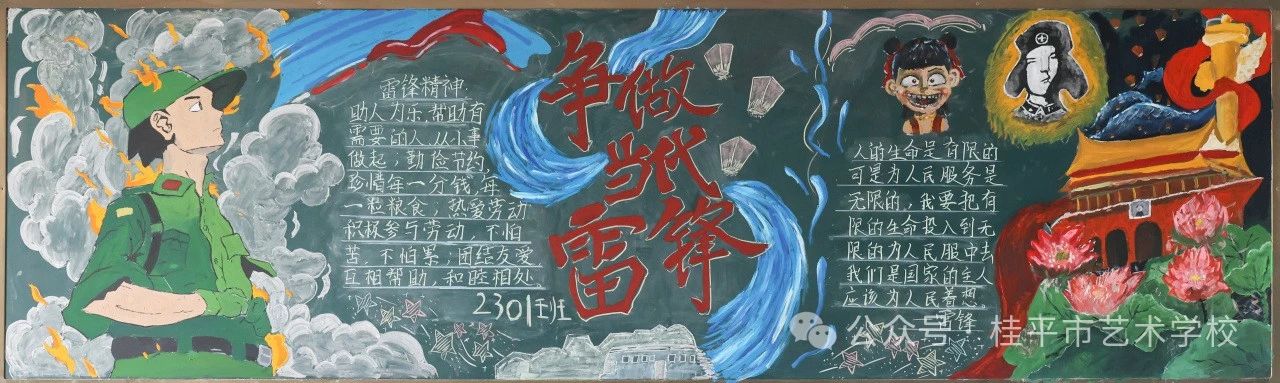 雷锋精神:
助人为乐,帮助有
需要的人,从小事
做起;勤俭节约,
珍惜每一分钱,每
一粒粮食;热爱劳动
积极参与劳动,不怕
苦,不怕累;团结友爱
互相帮助,和睦相处。
2301班
争做
当代
雷锋
人的生命是有限的
可是为人民服务是
无限的,我要把有
限的生命投入到无
限的为人民服中去
我们是国家的主人
应该为人民着想
——雷锋
公众号 · 桂平市艺术学校